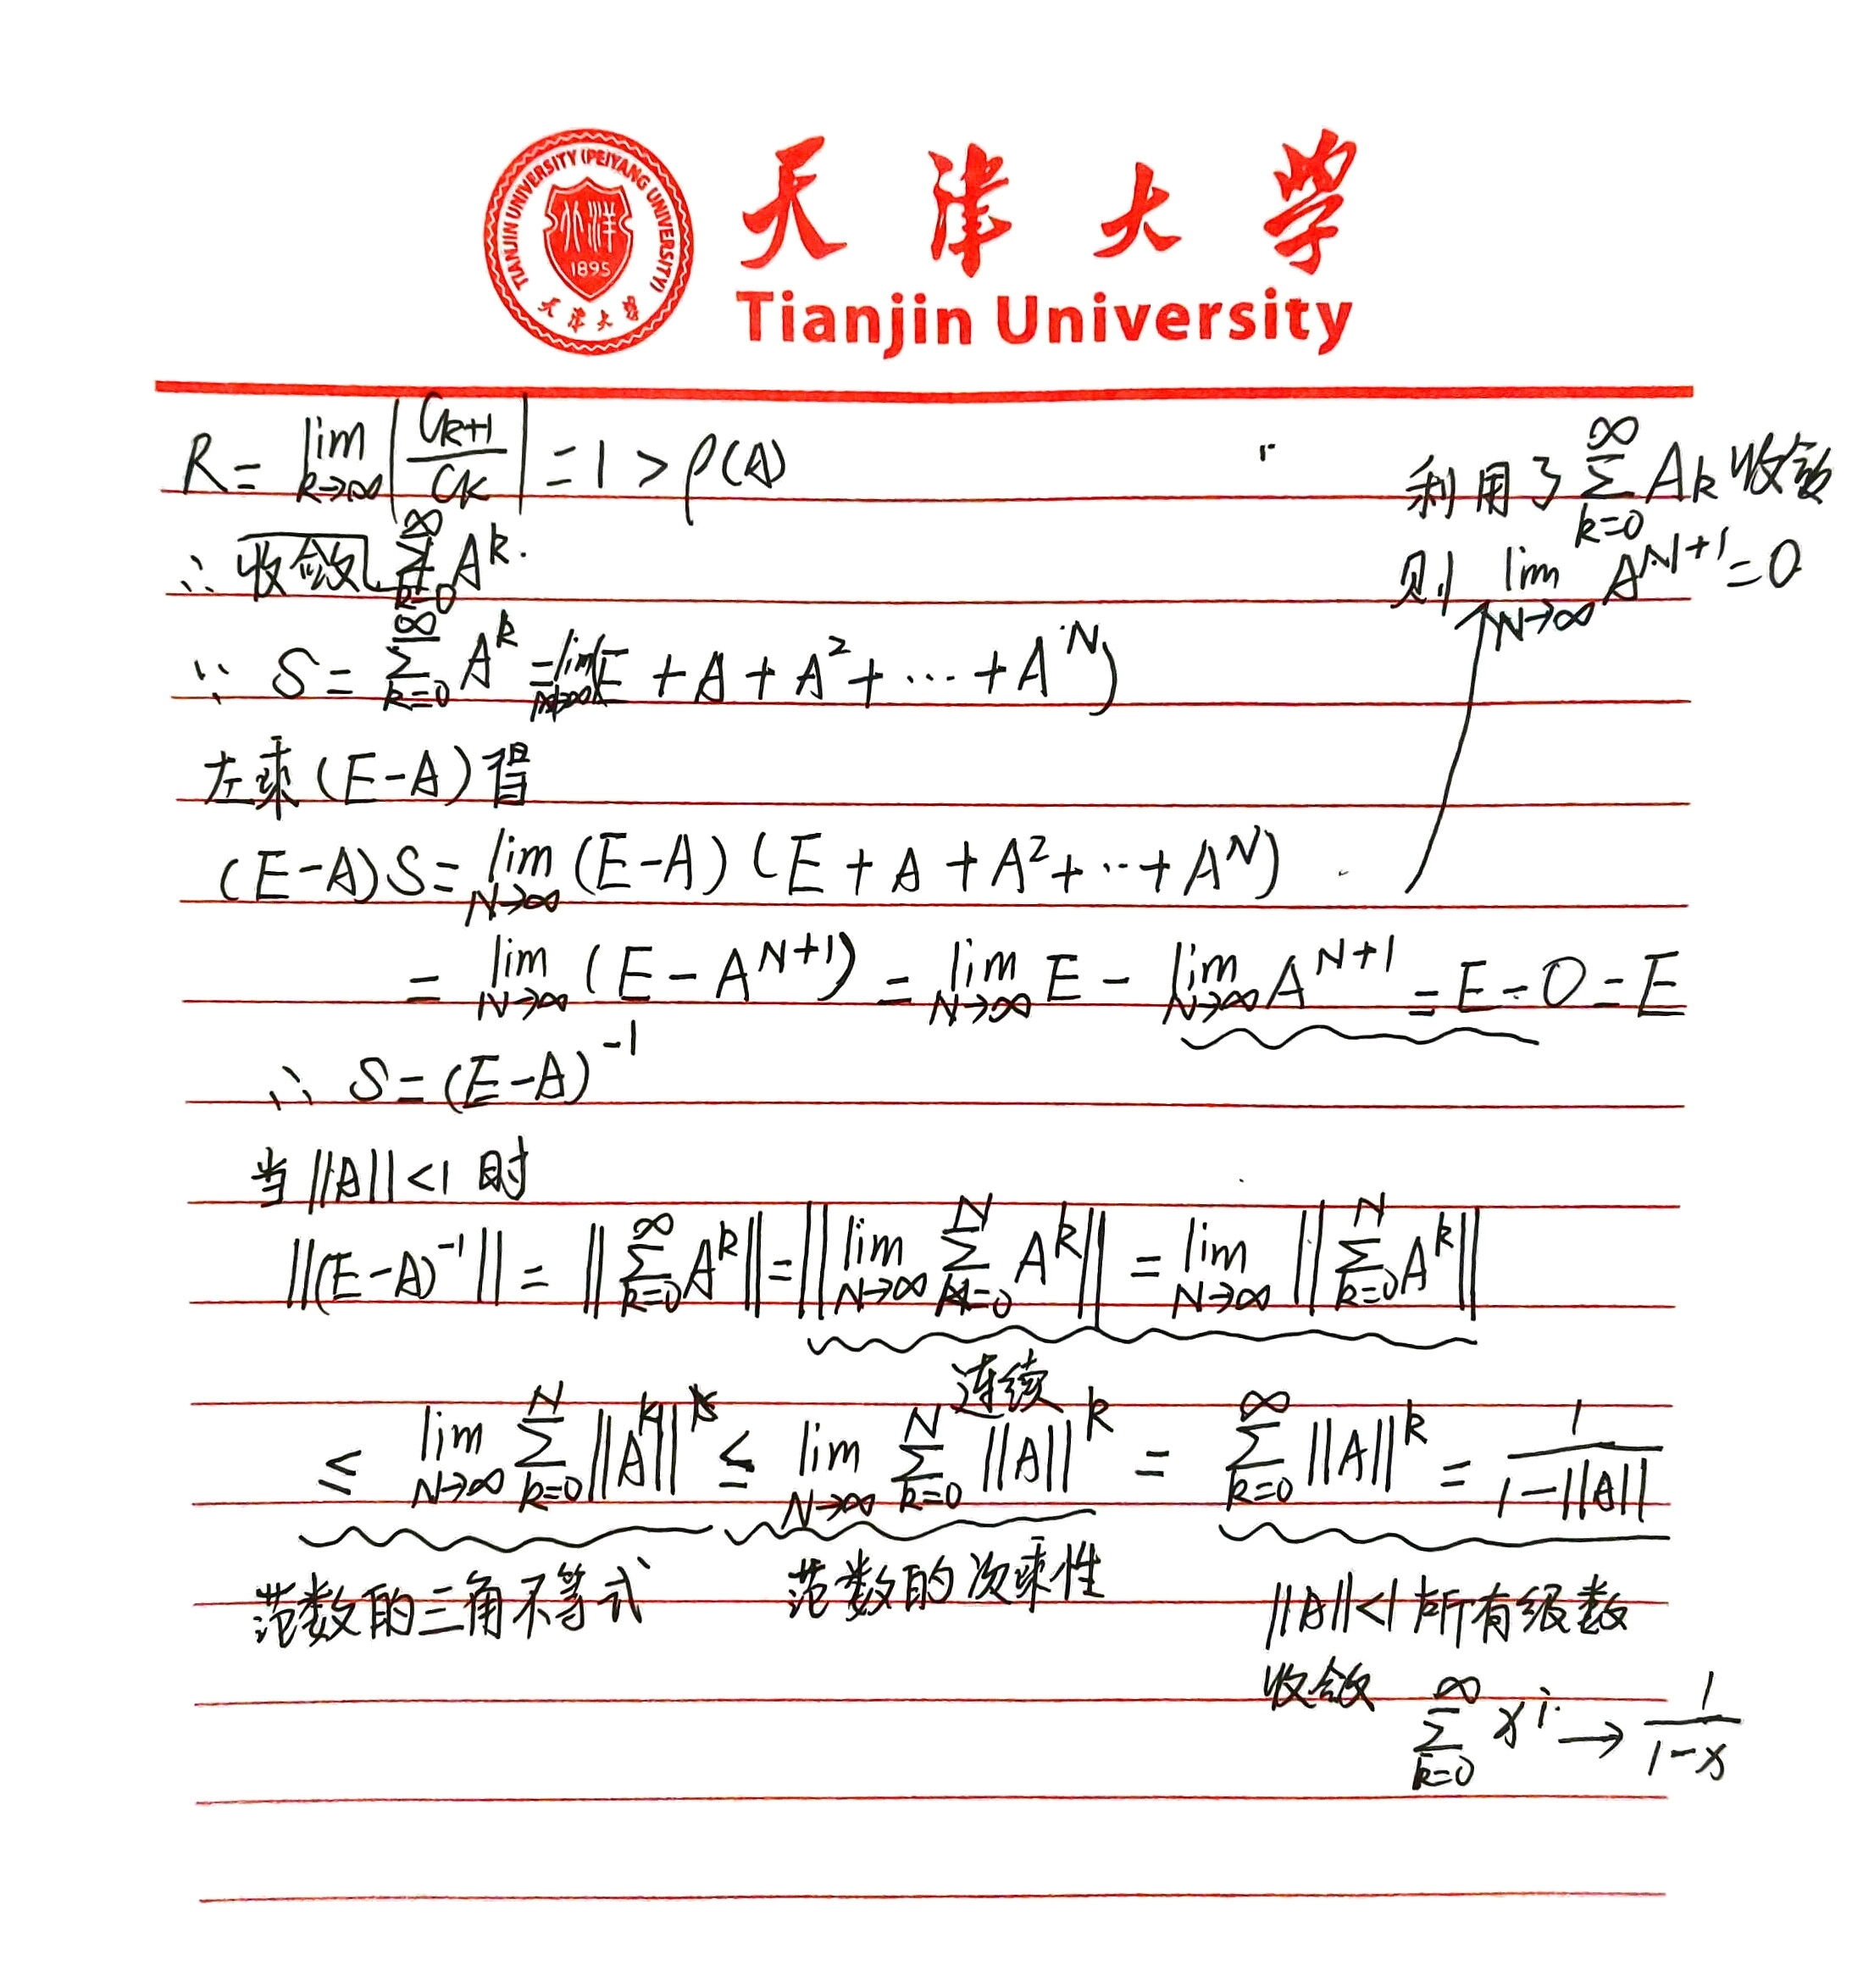 TIANJIN UNIVERSITY (PEIYANG UNIVERSITY)
北洋
1895
天津大学
天津大学
Tianjin University
R = lim_{k→∞} |C_{k+1}/C_k| = 1 > ρ(A)
利用了 ∑_{k=0}^{∞} A_k 收敛
则 lim_{N→∞} A^{N+1} = 0
∴ 收敛 ∑_{k=0}^{∞} A^k.
∵ S = ∑_{k=0}^{∞} A^k = lim_{N→∞} (E + A + A^2 + ⋯ + A^N)
左乘 (E-A) 得
(E-A)S = lim_{N→∞} (E-A)(E + A + A^2 + ⋯ + A^N)
= lim_{N→∞} (E - A^{N+1}) = lim_{N→∞} E - lim_{N→∞} A^{N+1} = E - O = E
∴ S = (E-A)^{-1}
当 ||A|| < 1 时
||(E-A)^{-1}|| = ||∑_{k=0}^{∞} A^k|| = ||lim_{N→∞} ∑_{k=0}^{N} A^k|| = lim_{N→∞} ||∑_{k=0}^{N} A^k||
连续
≤ lim_{N→∞} ∑_{k=0}^{N} ||A^k|| ≤ lim_{N→∞} ∑_{k=0}^{N} ||A||^k = ∑_{k=0}^{∞} ||A||^k = 1/(1-||A||)
范数的三角不等式 范数的次乘性
||A|| < 1 所有级数
收敛 ∑_{k=0}^{∞} x^i → 1/(1-x)